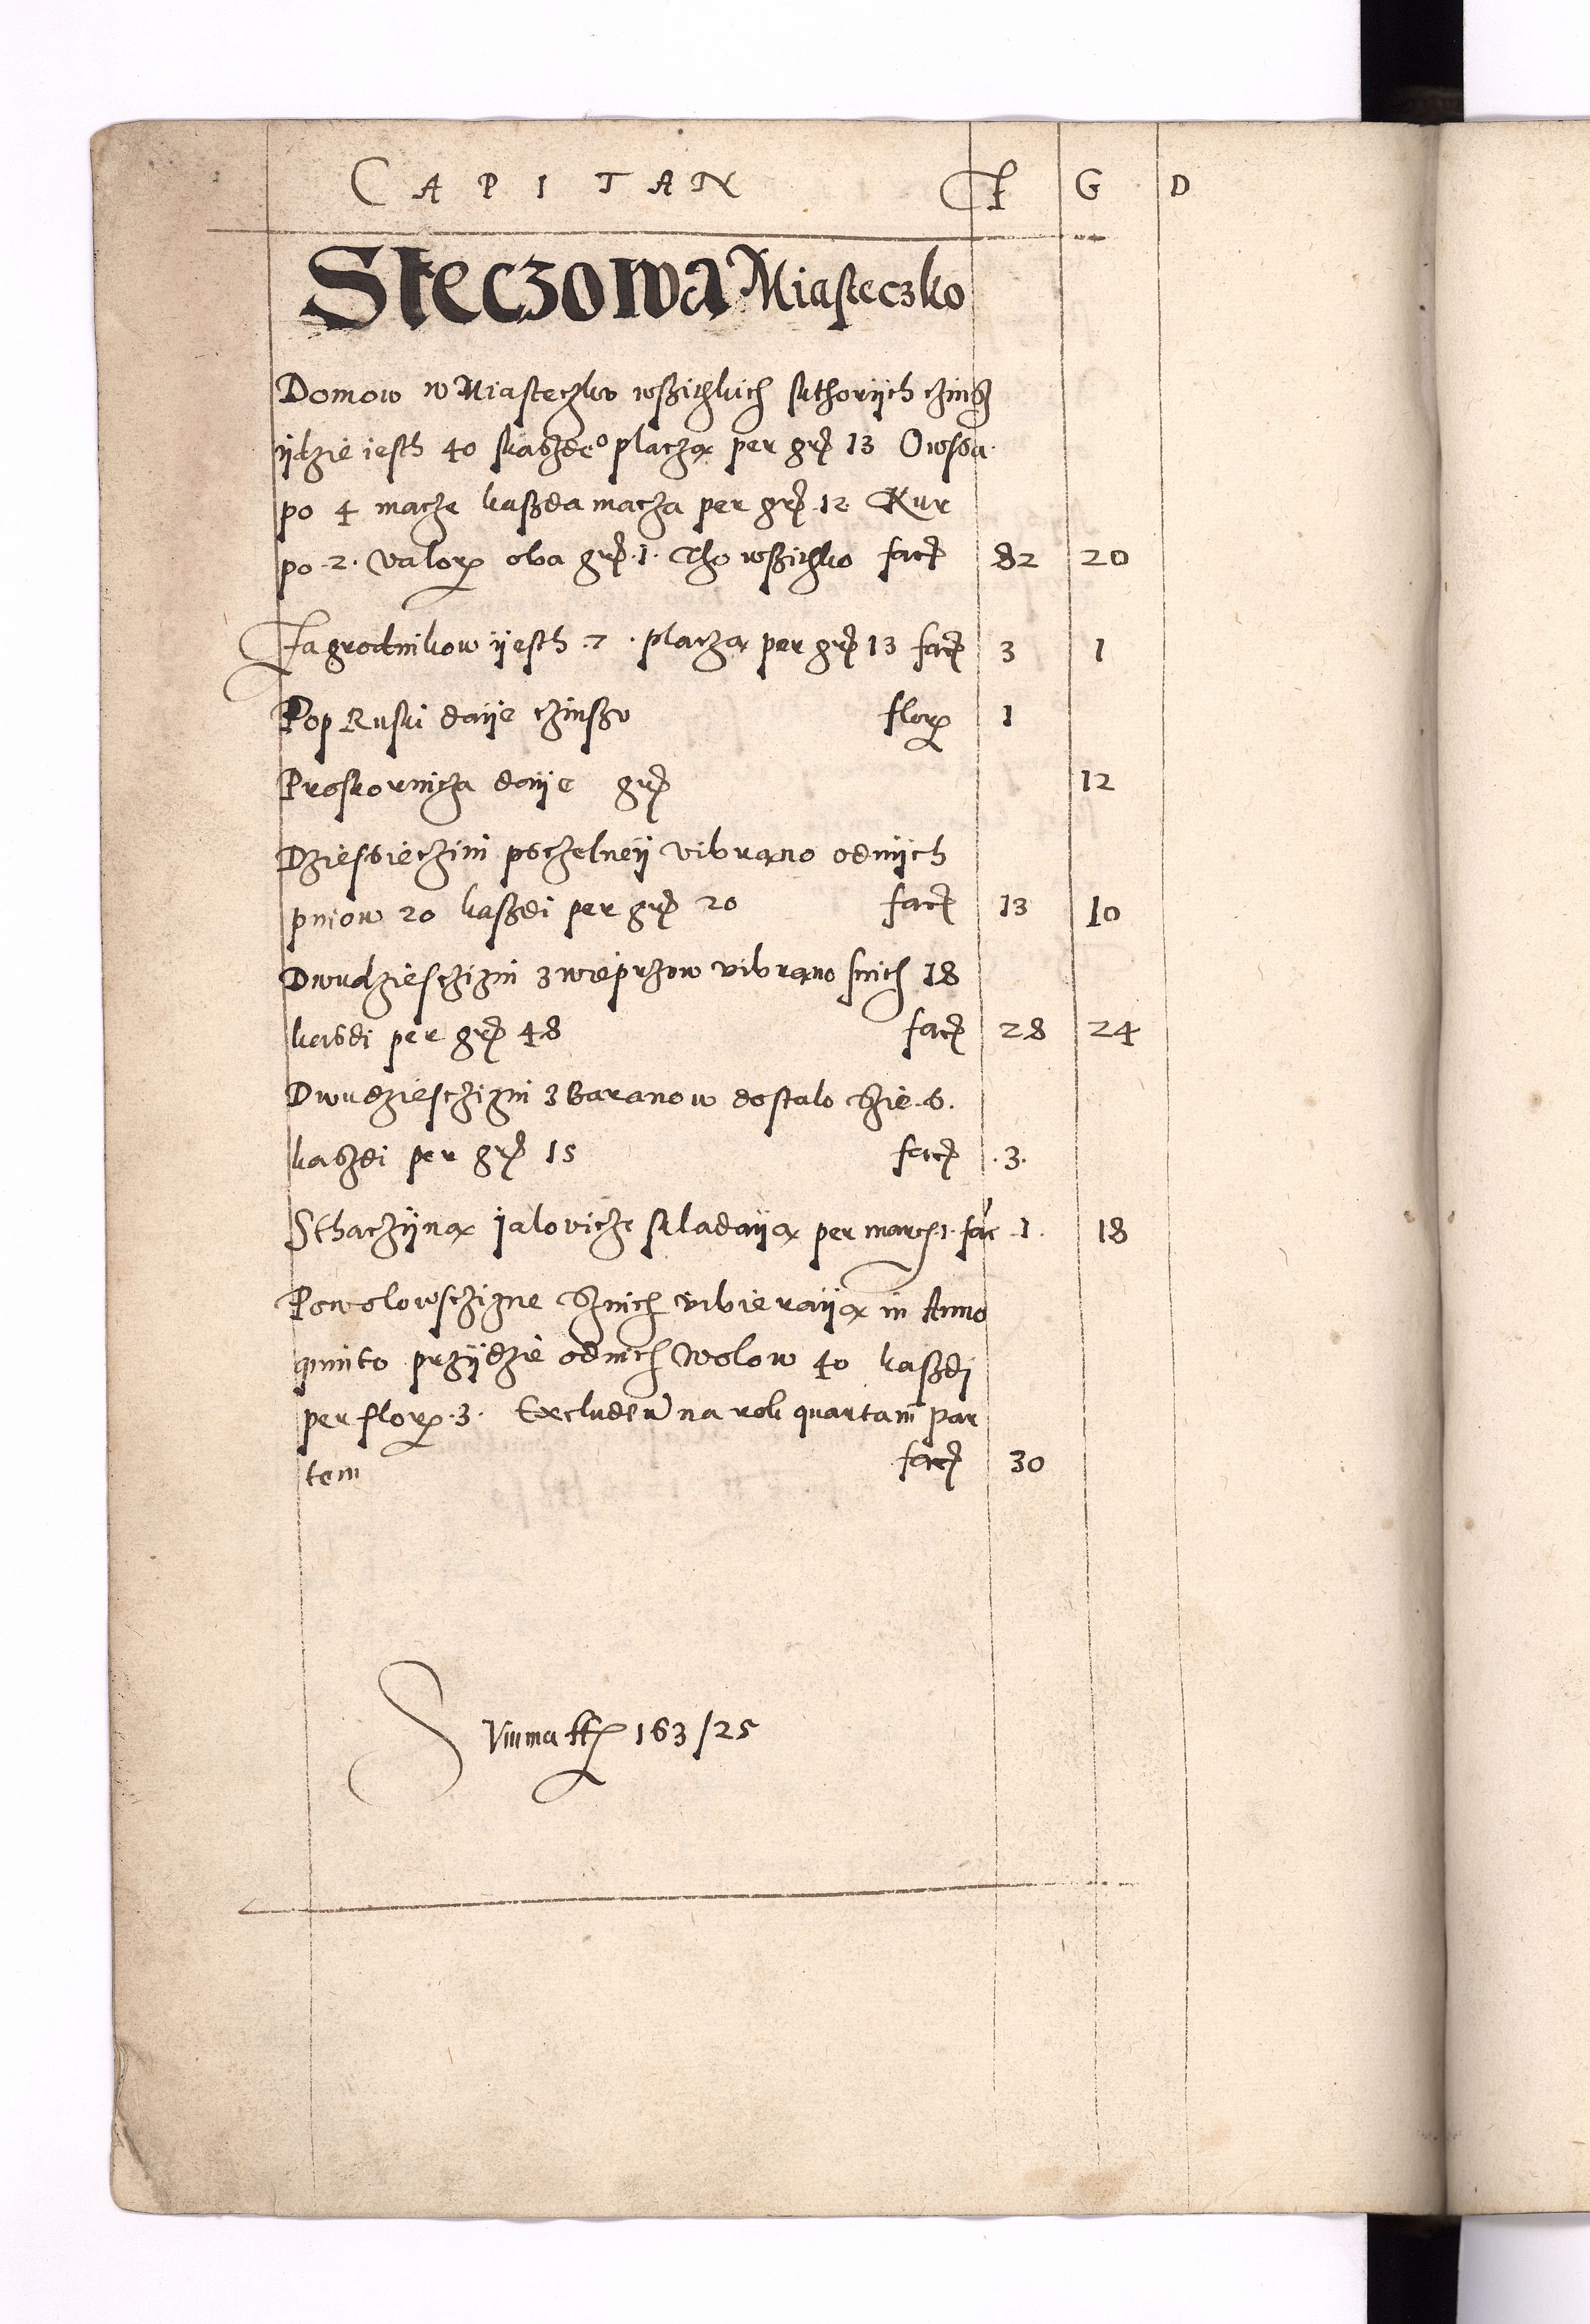 CAPITAN F G D
Steczowa Miasteczko
Domow w Miasteczko wßichkich skthorych czinß
ydzie iesth 40 skaßdeº placza per grß 13 Owssa
po 4 macze kaßda macza per grß 12 Kur
po 2. valor oba grß 1. Tho wßichko facß 82 20
Zagrodnikow yesth 7. placza per grß 13 facß 3 1
Pop Ruski daye czinßo flor 1
Proskornicza daye grß 12
Dziessieczini psczelney vibrano odnych
pniow 20 kaßdi per grß 20 facß 13 10
Dwudziesczizni z wieprzow vibrano snich 18
kasdi per grß 48 facß 28 24
Dwudziesczizni z Baranow dostalo szie 6.
kaszdi per grß 15 facß .3.
Sthaczyna jalovicze skladaya per marcß 1. fac 1. 18
Powolowsczizne sznich vibieraya in Anno
quinto przydzie odnich wolow 40 kaßdi
per flor 3. Excludendo na rok quartam par
tem facß 30
Summa ff 163/25